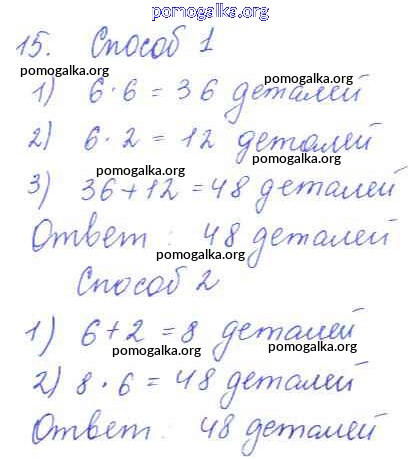 pomogalka.org
15. Способ 1
pomogalka.org
1) 6·6 = 36 деталей
pomogalka.org
2) 6·2 = 12 деталей
pomogalka.org
3) 36+12 = 48 деталей
pomogalka.org
Ответ: 48 деталей
pomogalka.org
Способ 2
1) 6+2 = 8 деталей
pomogalka.org
2) 8·6 = 48 деталей
pomogalka.org
Ответ: 48 деталей